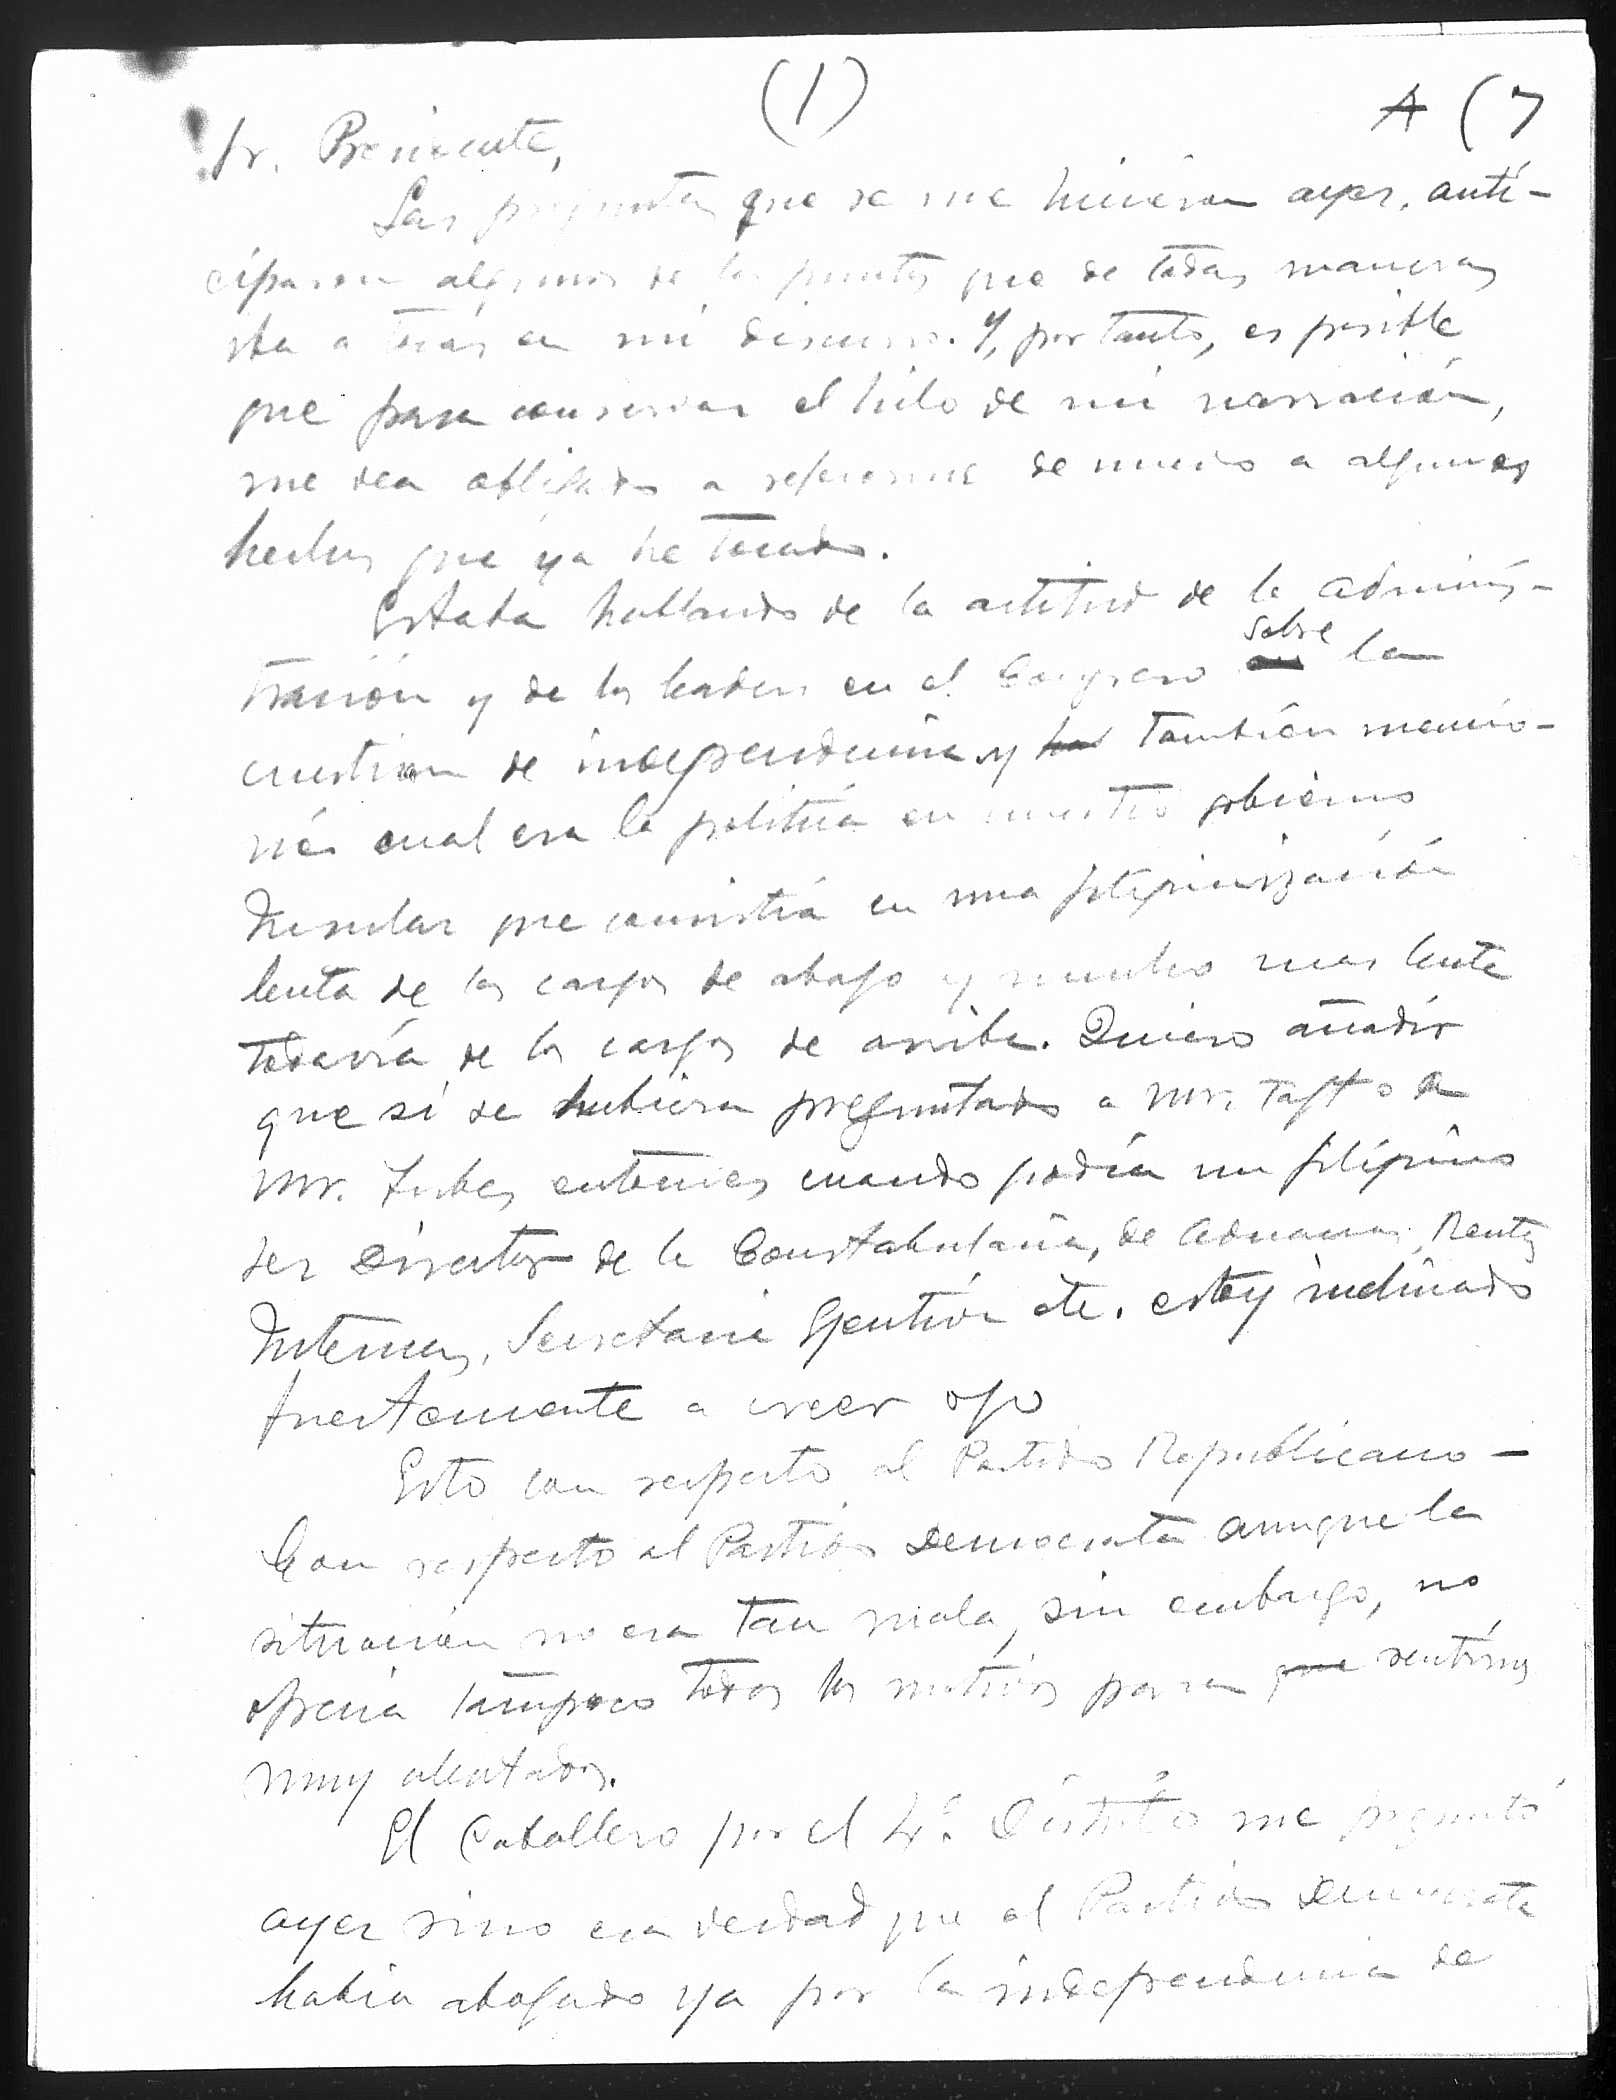 (1)
A (7
Sr. Presidente,
Las preguntas que se me hicieron ayer, anti-
ciparon algunos de los puntos que de todas maneras
iba a tocar en mi discurso. Y, por tanto, es posible
que para conservar el hilo de mi narración,
me vea obligado a referirme de nuevo a algunos
hechos que ya he tocado.
Estaba hablando de la actitud de la adminis-
tración y de los leaders en el Congreso sobre la
cuestion de independencia y también mencio-
né cual era la política en nuestro gobierno
Insular que consistía en una filipinización
lenta de los cargos de abajo y mucho mas lenta
todavía de los cargos de arriba. Quiero añadir
que si se hubiera preguntado a Mr. Taft o a
Mr. Forbes entonces cuando podía un filipino
ser Director de la Constabularia, de Aduanas, Rentas
Internas, Secretario Ejecutivo etc. estoy inclinado
fuertemente a creer
Esto con respecto al Partido Republicano -
Con respecto al Partido Democrata aunque la
situación no era tan mala, sin embargo, no
ofrecía tampoco todos los motivos para que sentirnos
muy alentados.
El Caballero por el 4º Distrito me preguntó
ayer sino era verdad que el Partido Democrata
había abogado ya por la independencia de